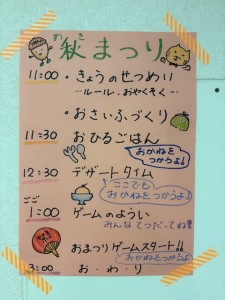 あき
秋まつり
11:00 ・きょうのせつめい
…ルール、おやくそく…
・おさいふづくり
11:30 おひるごはん
おかねを
つかうよ!
12:30 デザートタイム
ここでも
おかねをつかうよ!
ごご
1:00 ゲームのようい
みんなてつだってね!
おまつりゲームスタート!!
おかねをつかうよ
3:00 お・わ・り